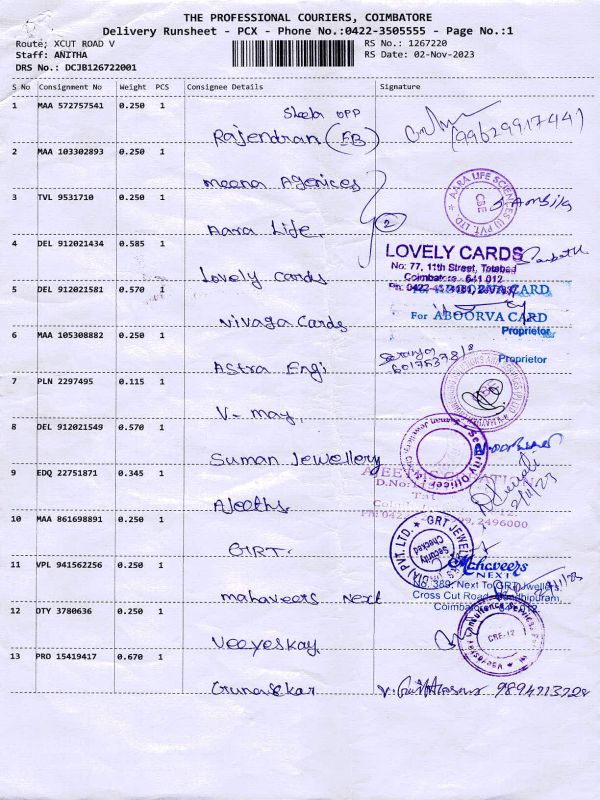 THE PROFESSIONAL COURIERS, COIMBATORE
Delivery Runsheet - PCX - Phone No.:0422-3505555 - Page No.:1
Route; XCUT ROAD V
Staff: ANITHA
DRS No.: DCJB126722001
RS No.: 1267220
RS Date: 02-Nov-2023
S No Consignment No Weight PCS Consignee Details Signature
1 MAA 572757541 0.250 1
Sheela opp
Rajendran (EB)
2 MAA 103302893 0.250 1
meena Agencies
3 TVL 9531710 0.250 1
Aara Life. 2
AARA LIFE SCIENCES (I) PVT. LTD. CBE
4 DEL 912021434 0.585 1
Lovely Cards
LOVELY CARDS
No: 77, 11th Street, Tatabad
Coimbatore - 641 012
5 DEL 912021581 0.570 1
Nivaga Cards
For ABOORVA CARD
For ABOORVA CARD
Proprietor
6 MAA 105308882 0.250 1
Astra Engi
Proprietor
7 PLN 2297495 0.115 1
V- may,
8 DEL 912021549 0.570 1
Suman Jewellery
Security Officer
9 EDQ 22751871 0.345 1
Ajeeths
D.No:
2/11/23
2496000
10 MAA 861698891 0.250 1
GRT.
GRT JEWEL (INDIA) PVT. LTD. Security Checked
11 VPL 941562256 0.250 1
mahaveers Next
Mahaveers
NEXT
No. 389, Next To GRT Jwellers,
Cross Cut Road, Gandhipuram
Coimbatore - 641 012
12 DTY 3780636 0.250 1
Veeyeskay
CBE-12
13 PRO 15419417 0.670 1
Gunasekar
9894713728